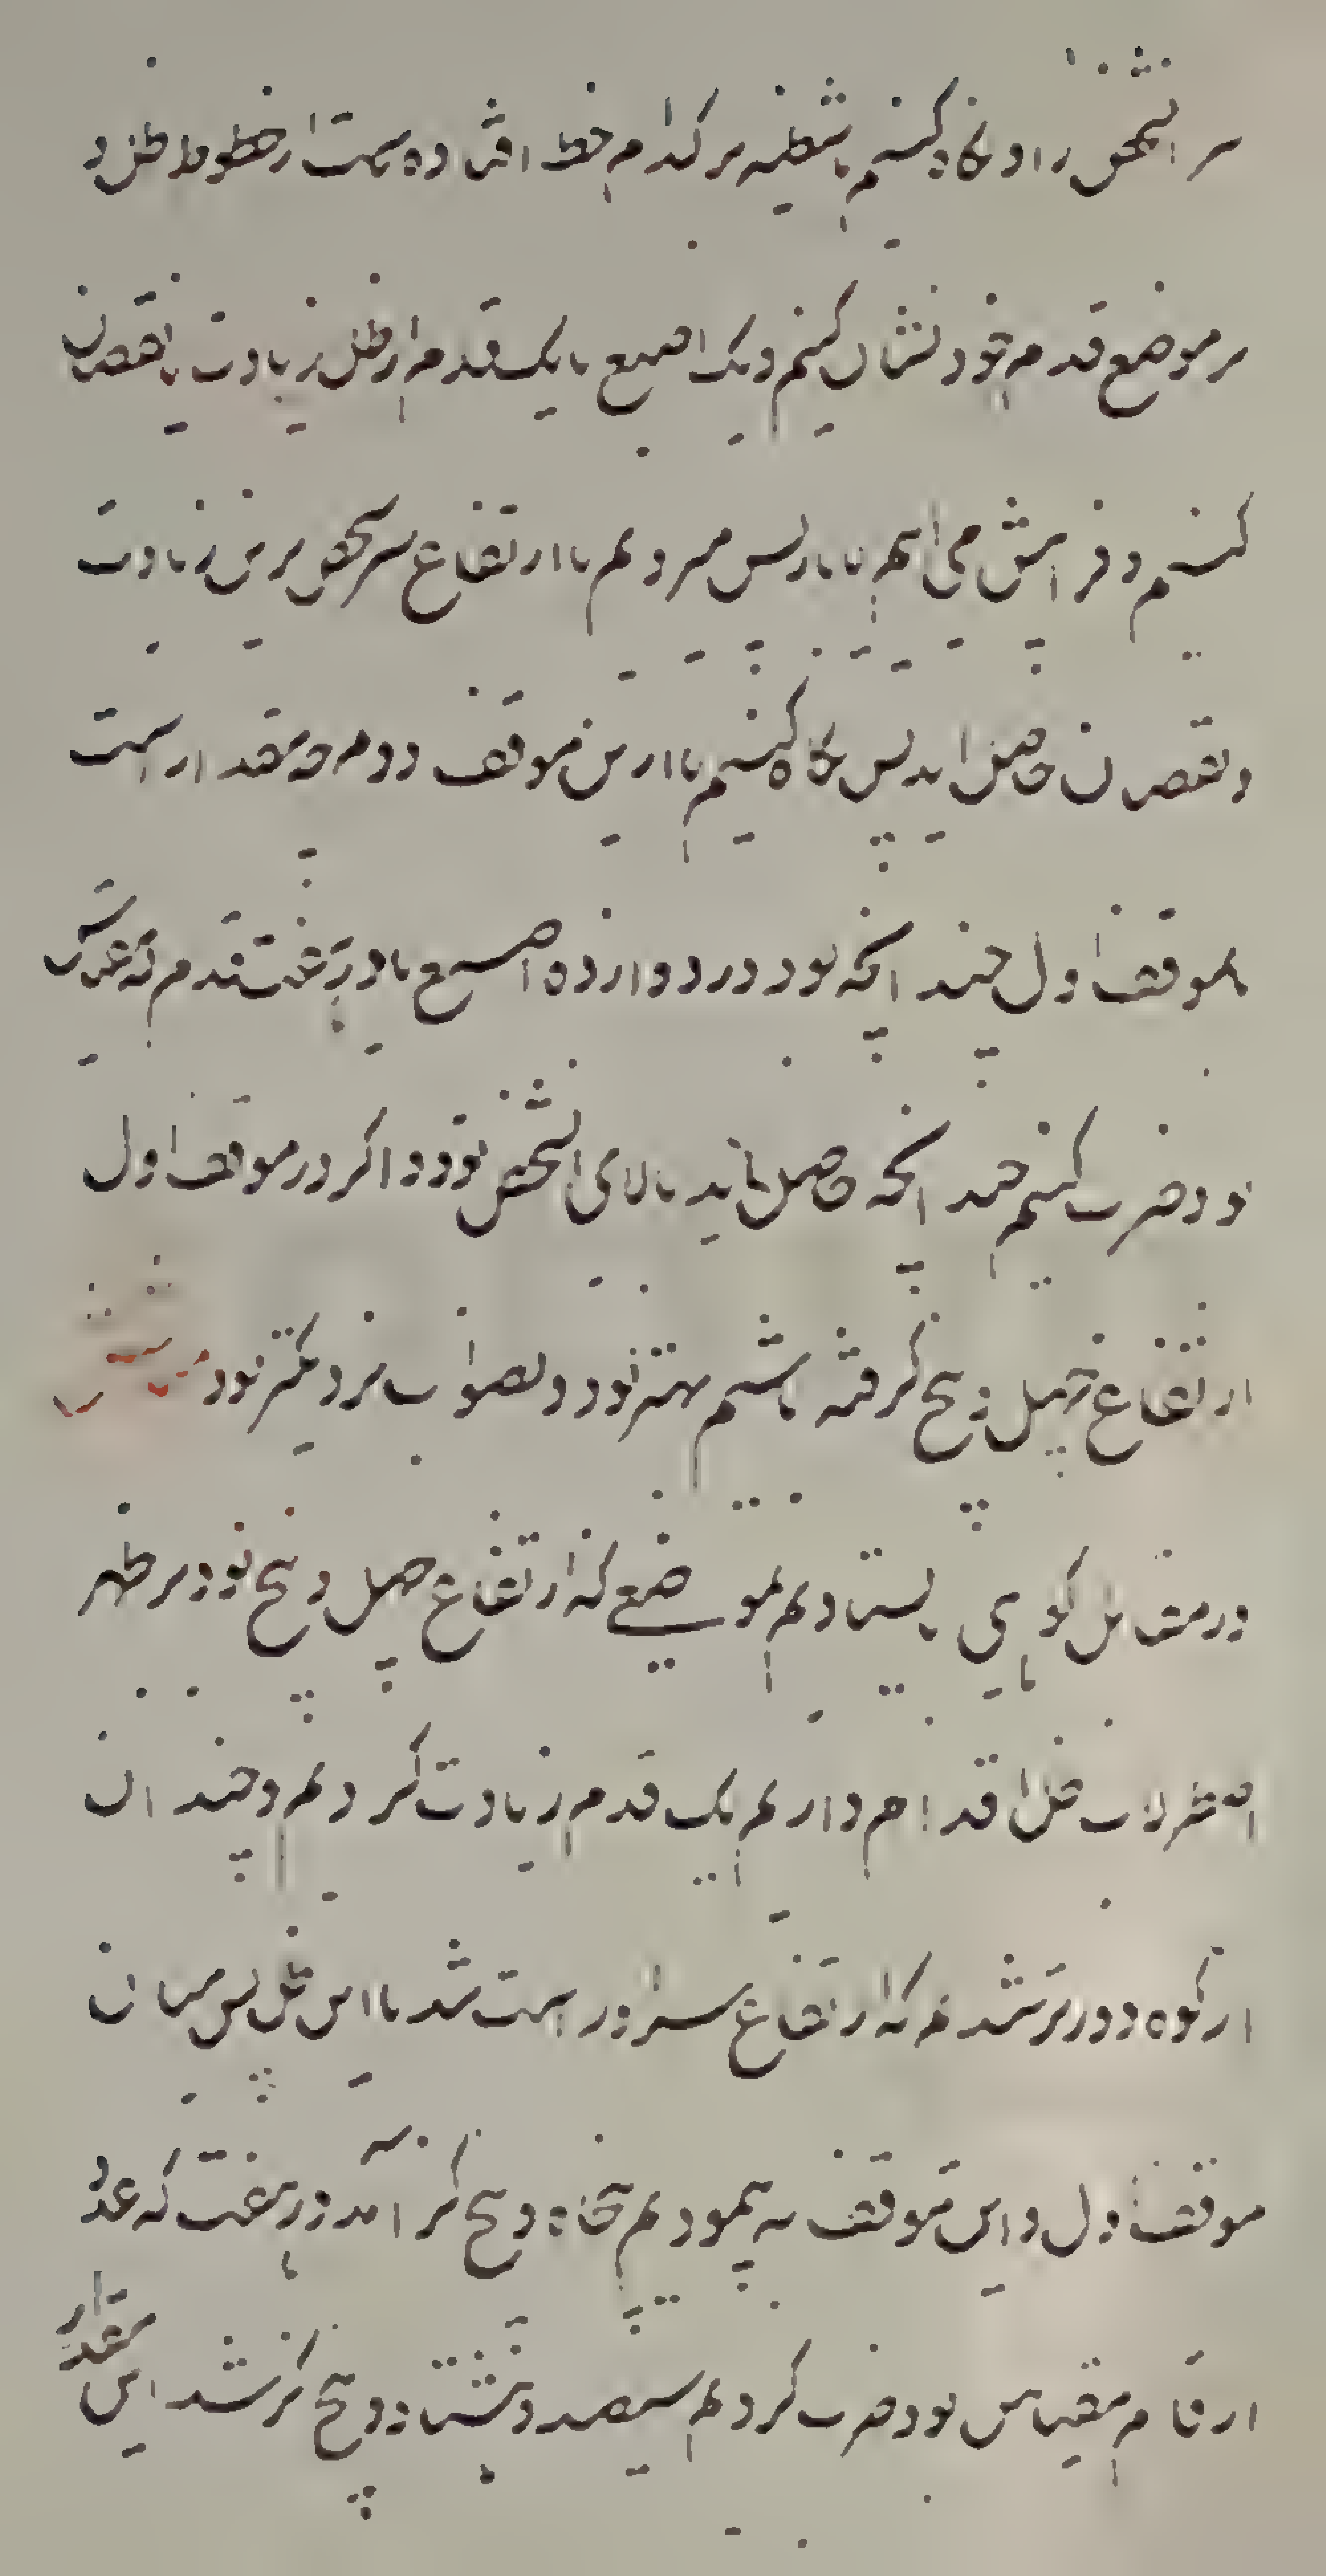 سر انشخص را و نگاه کنیم تا شظیه بر کدام خط افتاده است از خطوط ظل و
بر موضع قدم خود نشان کنیم و یک اصبع یا یک قدم از ظل زیادت یا نقصان
کنیم و فراپیش می‌آییم یا باز پس میرویم تا ارتفاع سر شخص برین زیادت
و نقصان حاصل اید پس نگاه کنیم تا ازین موقف دوم چه مقدار است
بموقف اول چندانکه بود در دوازده اصبع یا در هفت قدم که عدد
بود ضرب کنیم چندانچه حاصل اید بالای شخص بود و اکر در موقف اول
ارتفاع چهل و پنج کرفته باشیم بهتر بود و بصواب نزدیکتر بود مثالش
در مقابل کوهی بایستادیم بموضعی که ارتفاع چهل و پنج بود بر ظهر
اصطرلاب ظل اقدام داریم یک قدم زیادت کردیم و چندان
از کوه دورتر شدیم که ارتفاع سر او راست شد با این ظل پس میان
موقف اول و این موقف به پیمودیم پنجاه و پنج کز آمد در هفت که عدد
اقدام مقیاس بود ضرب کردیم سیصد و هشتاد و پنج کز شد این مقدار